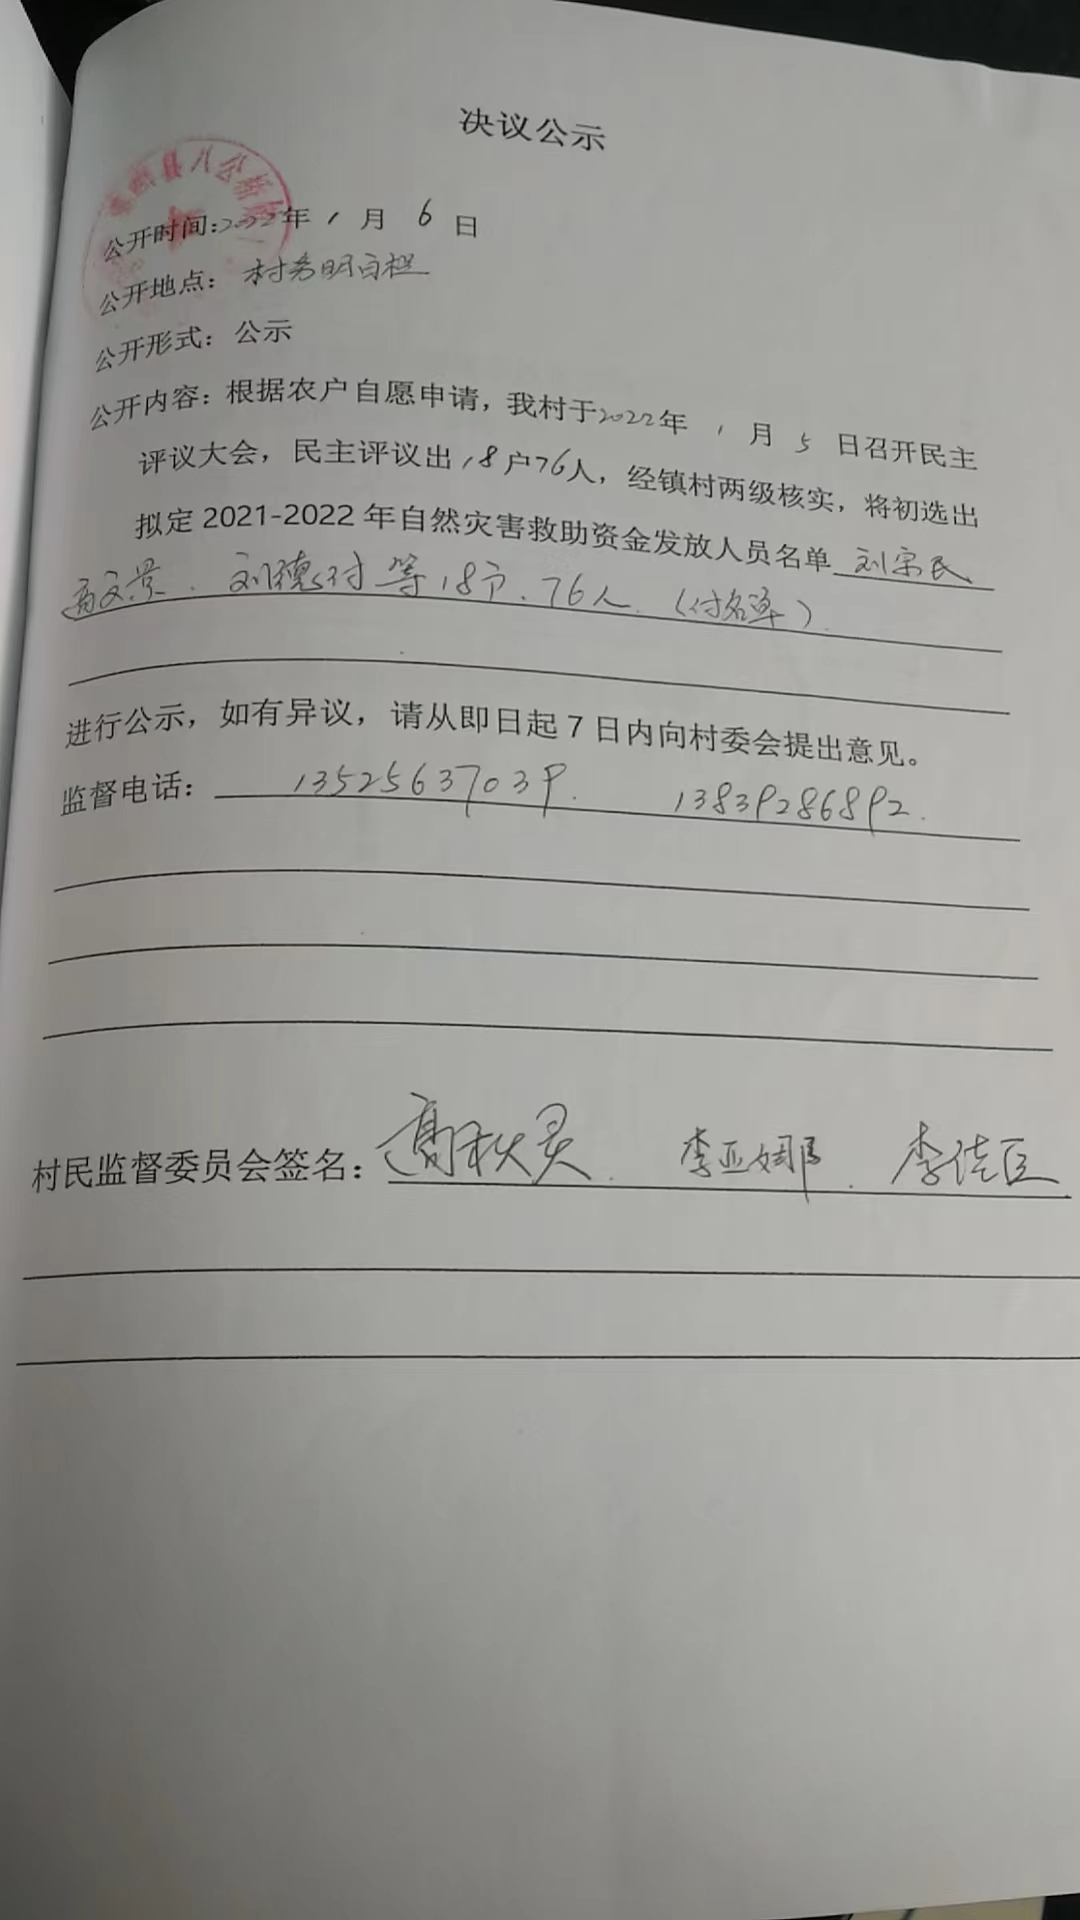 决议公示
县八公桥镇
公开时间:2022年1月6日
公开地点：村务明白栏
公开形式：公示
公开内容：根据农户自愿申请，我村于2022年1月5日召开民主
评议大会，民主评议出18户76人，经镇村两级核实，将初选出
拟定2021-2022年自然灾害救助资金发放人员名单刘宗民、
高文景、刘德对等18户、76人.（付名单）
进行公示，如有异议，请从即日起7日内向村委会提出意见。
监督电话：13525637039. 13839286892.
村民监督委员会签名：高秋灵. 李亚娜. 李佳臣